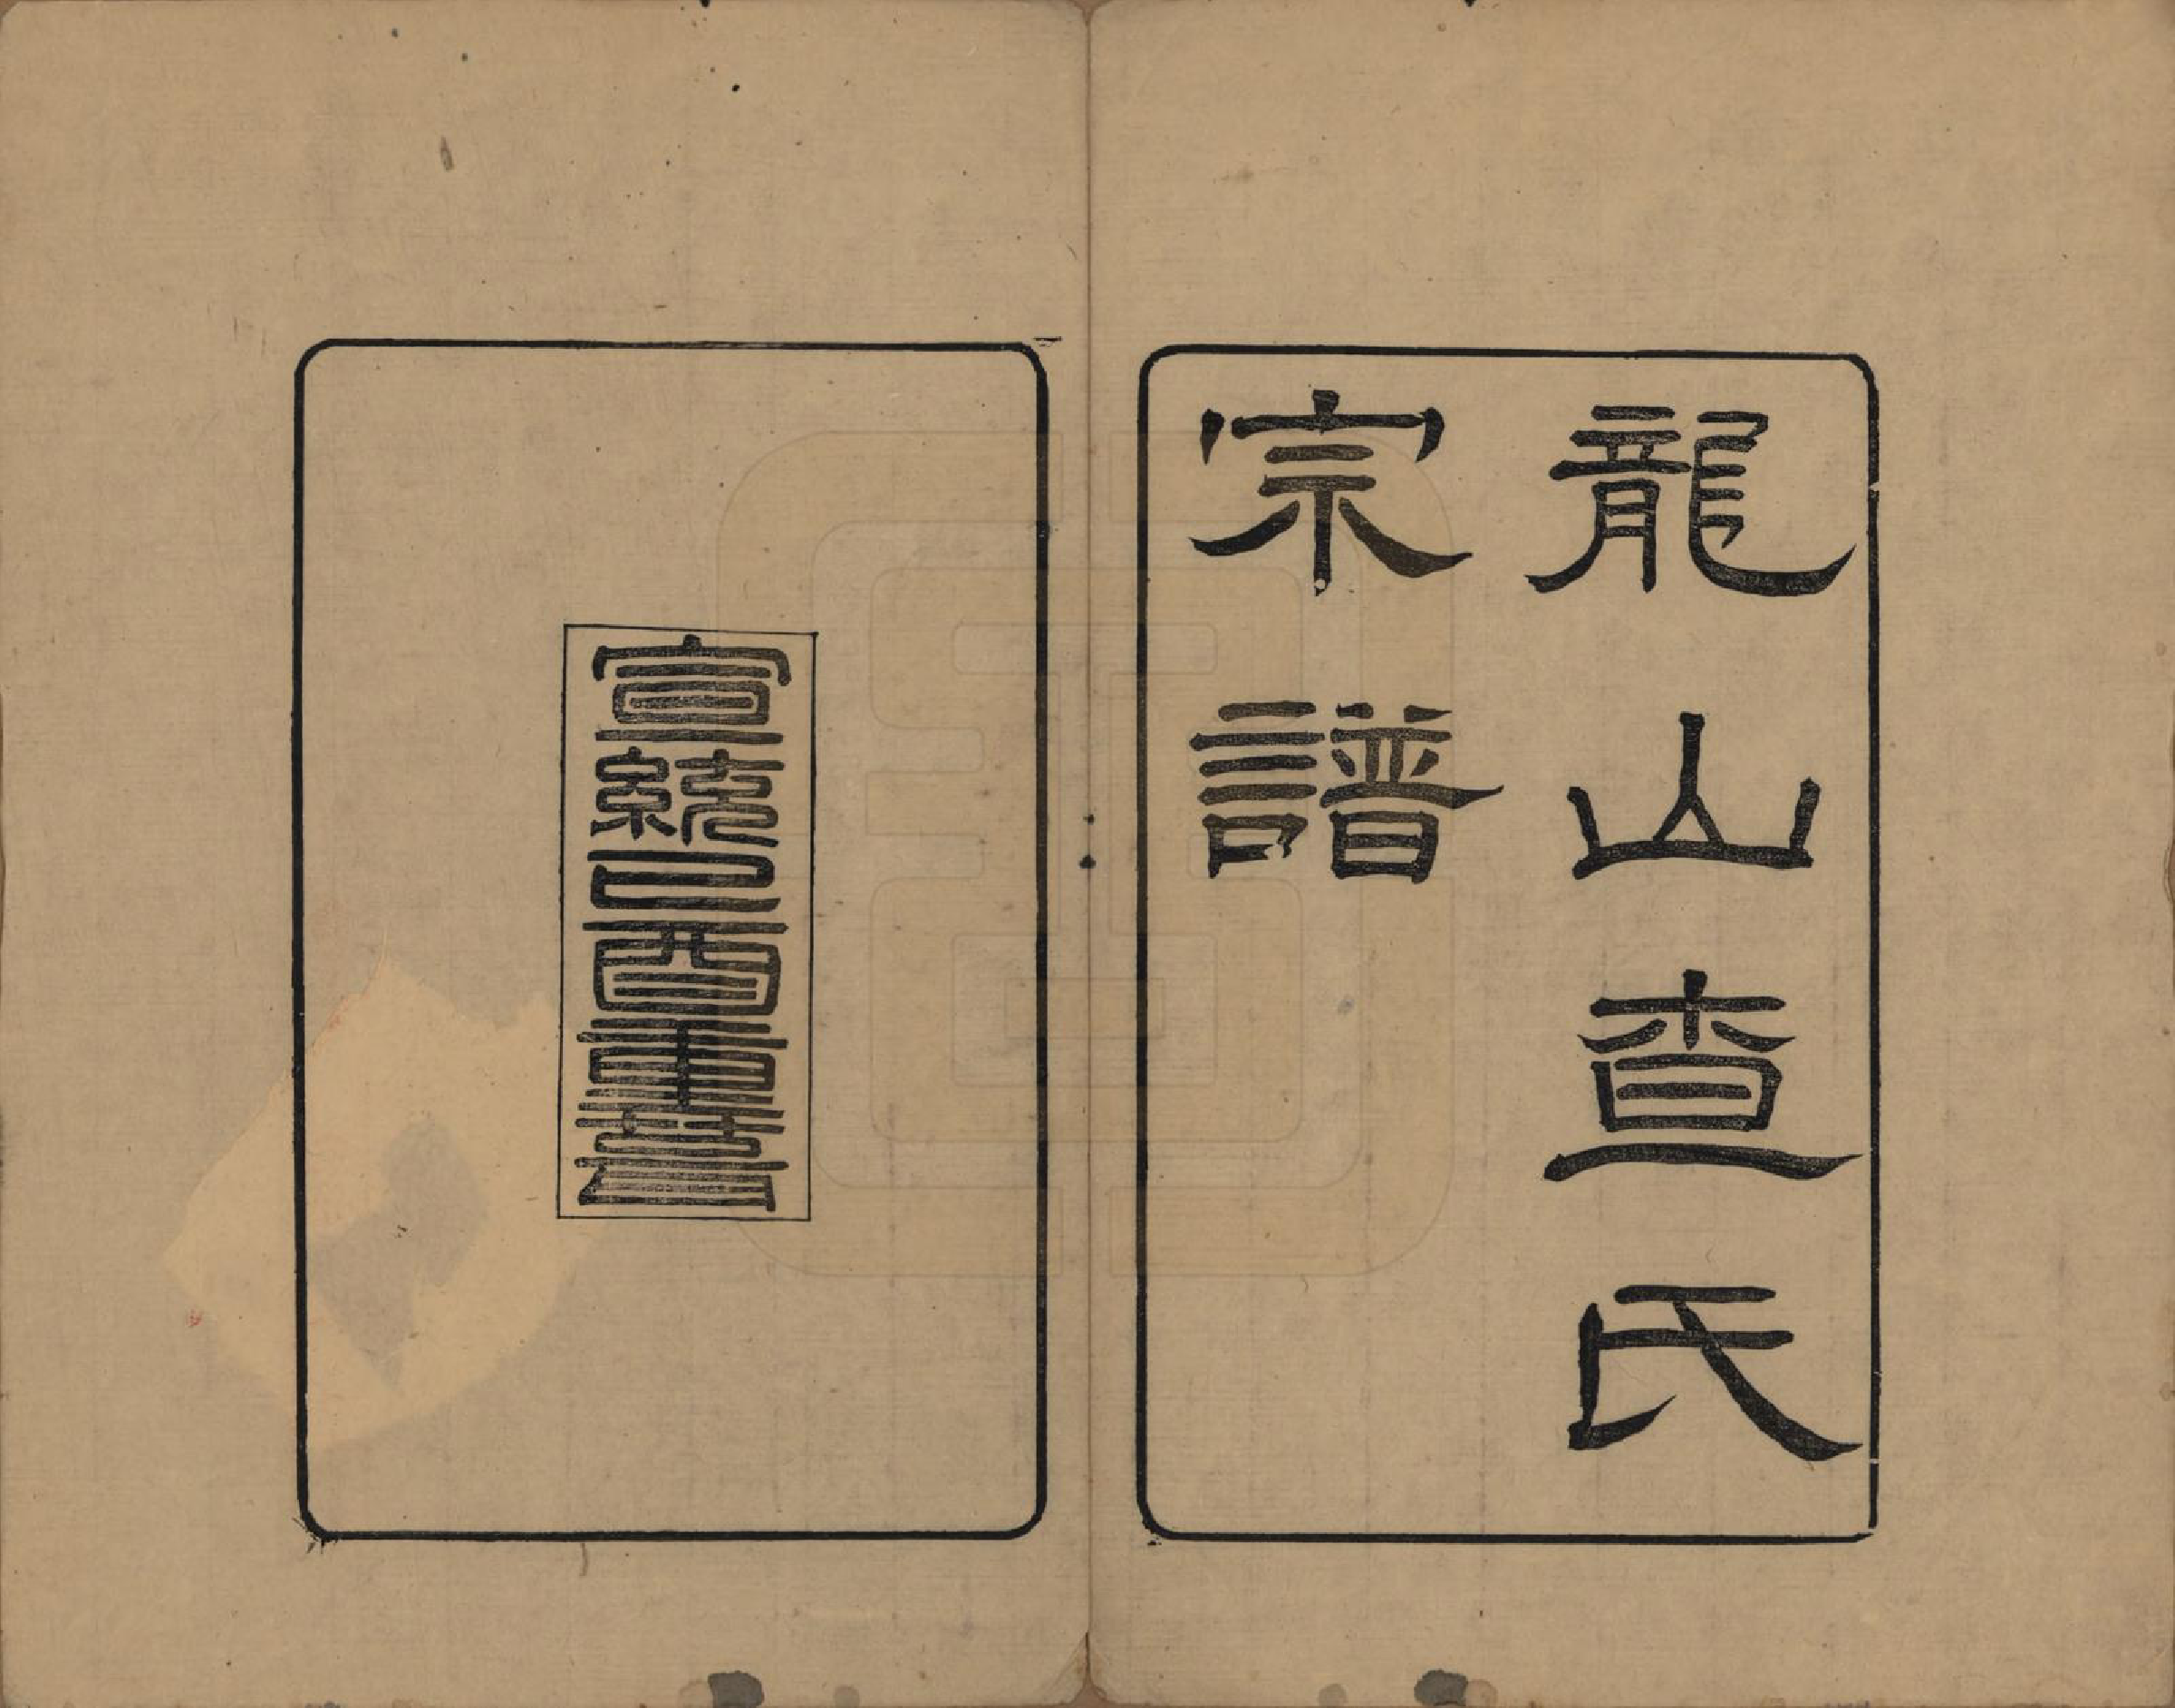 龍山查氏
宗譜
宣統己酉重&#x9441;